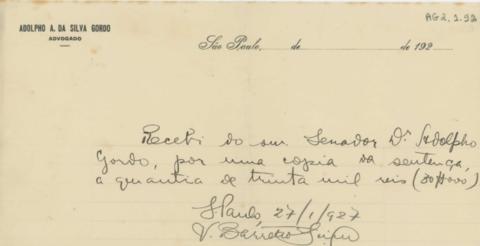 AG2.1.92
ADOLPHO A. DA SILVA GORDO
ADVOGADO
São Paulo, de de 192
Recebi do snr. Senador Dr. Adolpho
Gordo, por uma copia da sentença,
a quantia de trinta mil reis (30$000)
S Paulo, 27/1/927
V. Barretto